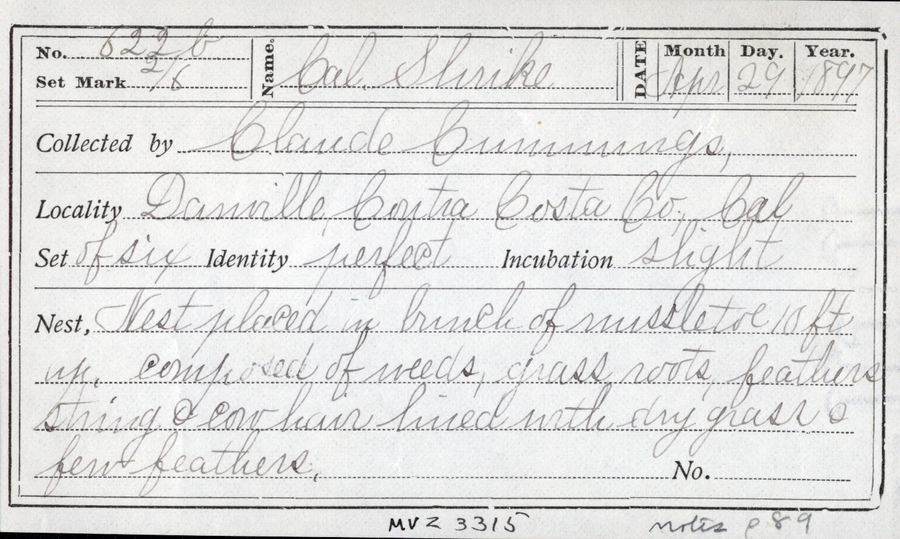 No. 622b Name. Cal. Shrike DATE Month Day. Year.
Set Mark 2/6 Apr 29 1897
Collected by Claude Cummings,
Locality Danville, Contra Costa Co., Cal
Set of six Identity perfect Incubation slight
Nest, Nest placed in bunch of missletoe 10 ft
up, composed of weeds, grass roots, feathers
string & cow hair lined with dry grass &
few feathers. No.
MVZ 3315 notes p 89